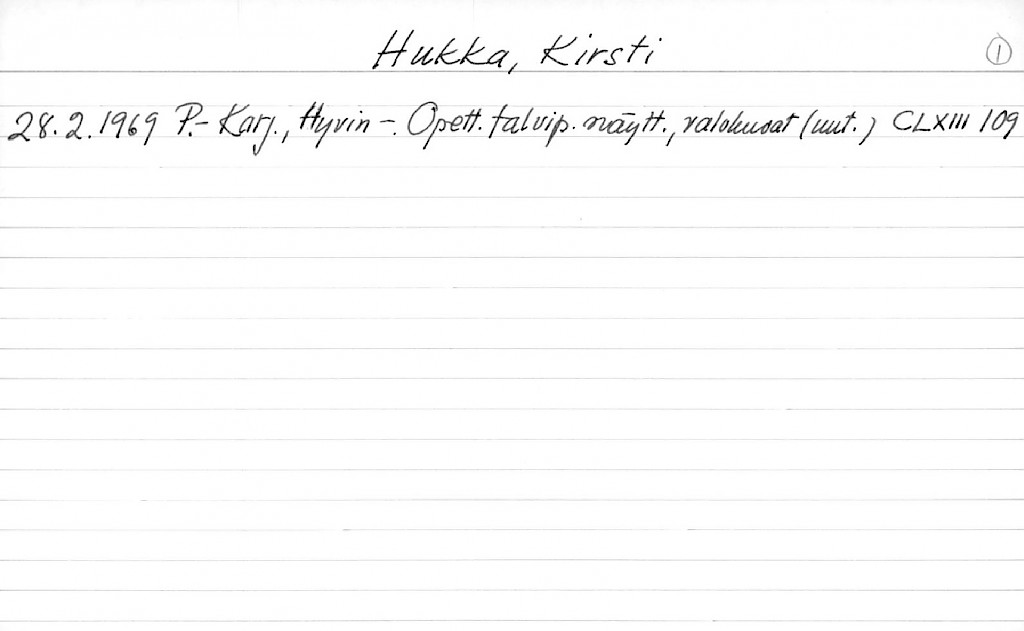 Hukka, Kirsti 1
28.2.1969 P.-Karj., Hyvin-. Opett. talvip. näytt., valokuvat (uut.) CLXIII 109